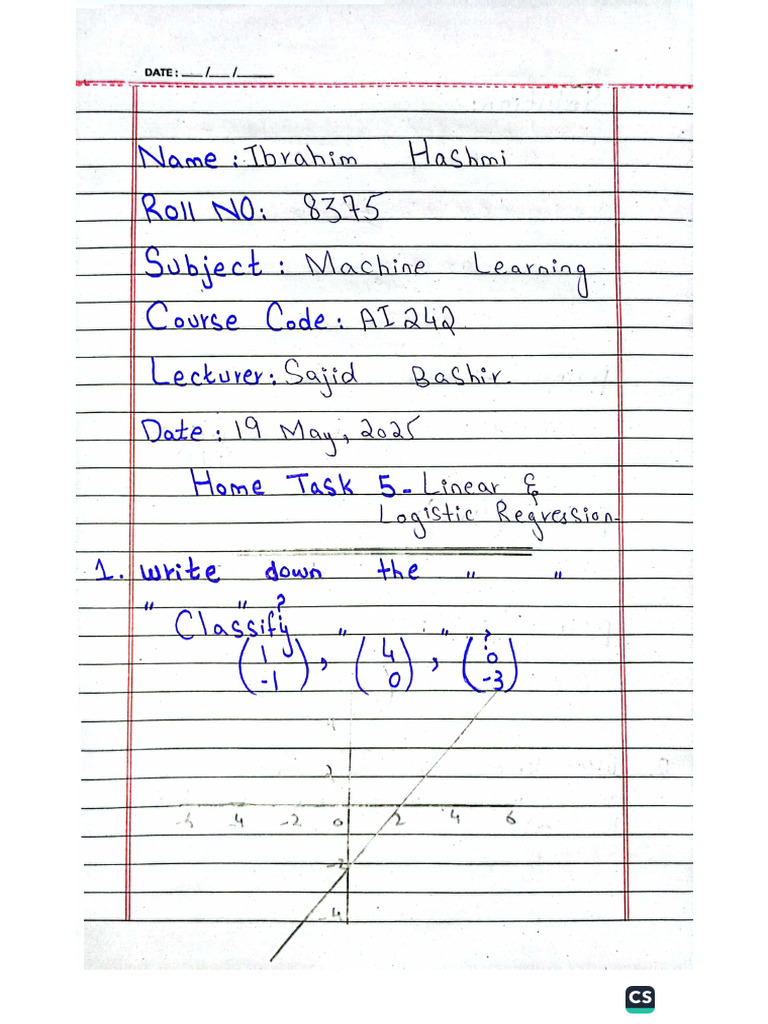 DATE: __/__/____
Name: Ibrahim Hashmi
Roll NO: 8375
Subject: Machine Learning
Course Code: AI 242
Lecturer: Sajid Bashir.
Date: 19 May, 2025
Home Task 5 - Linear &
Logistic Regression.
1. Write down the " "
" Classify " ? " " ?
(1 -1), (4 0), (0 -3)
2
-4 -2 0 2 4 6
-2
-4
CS